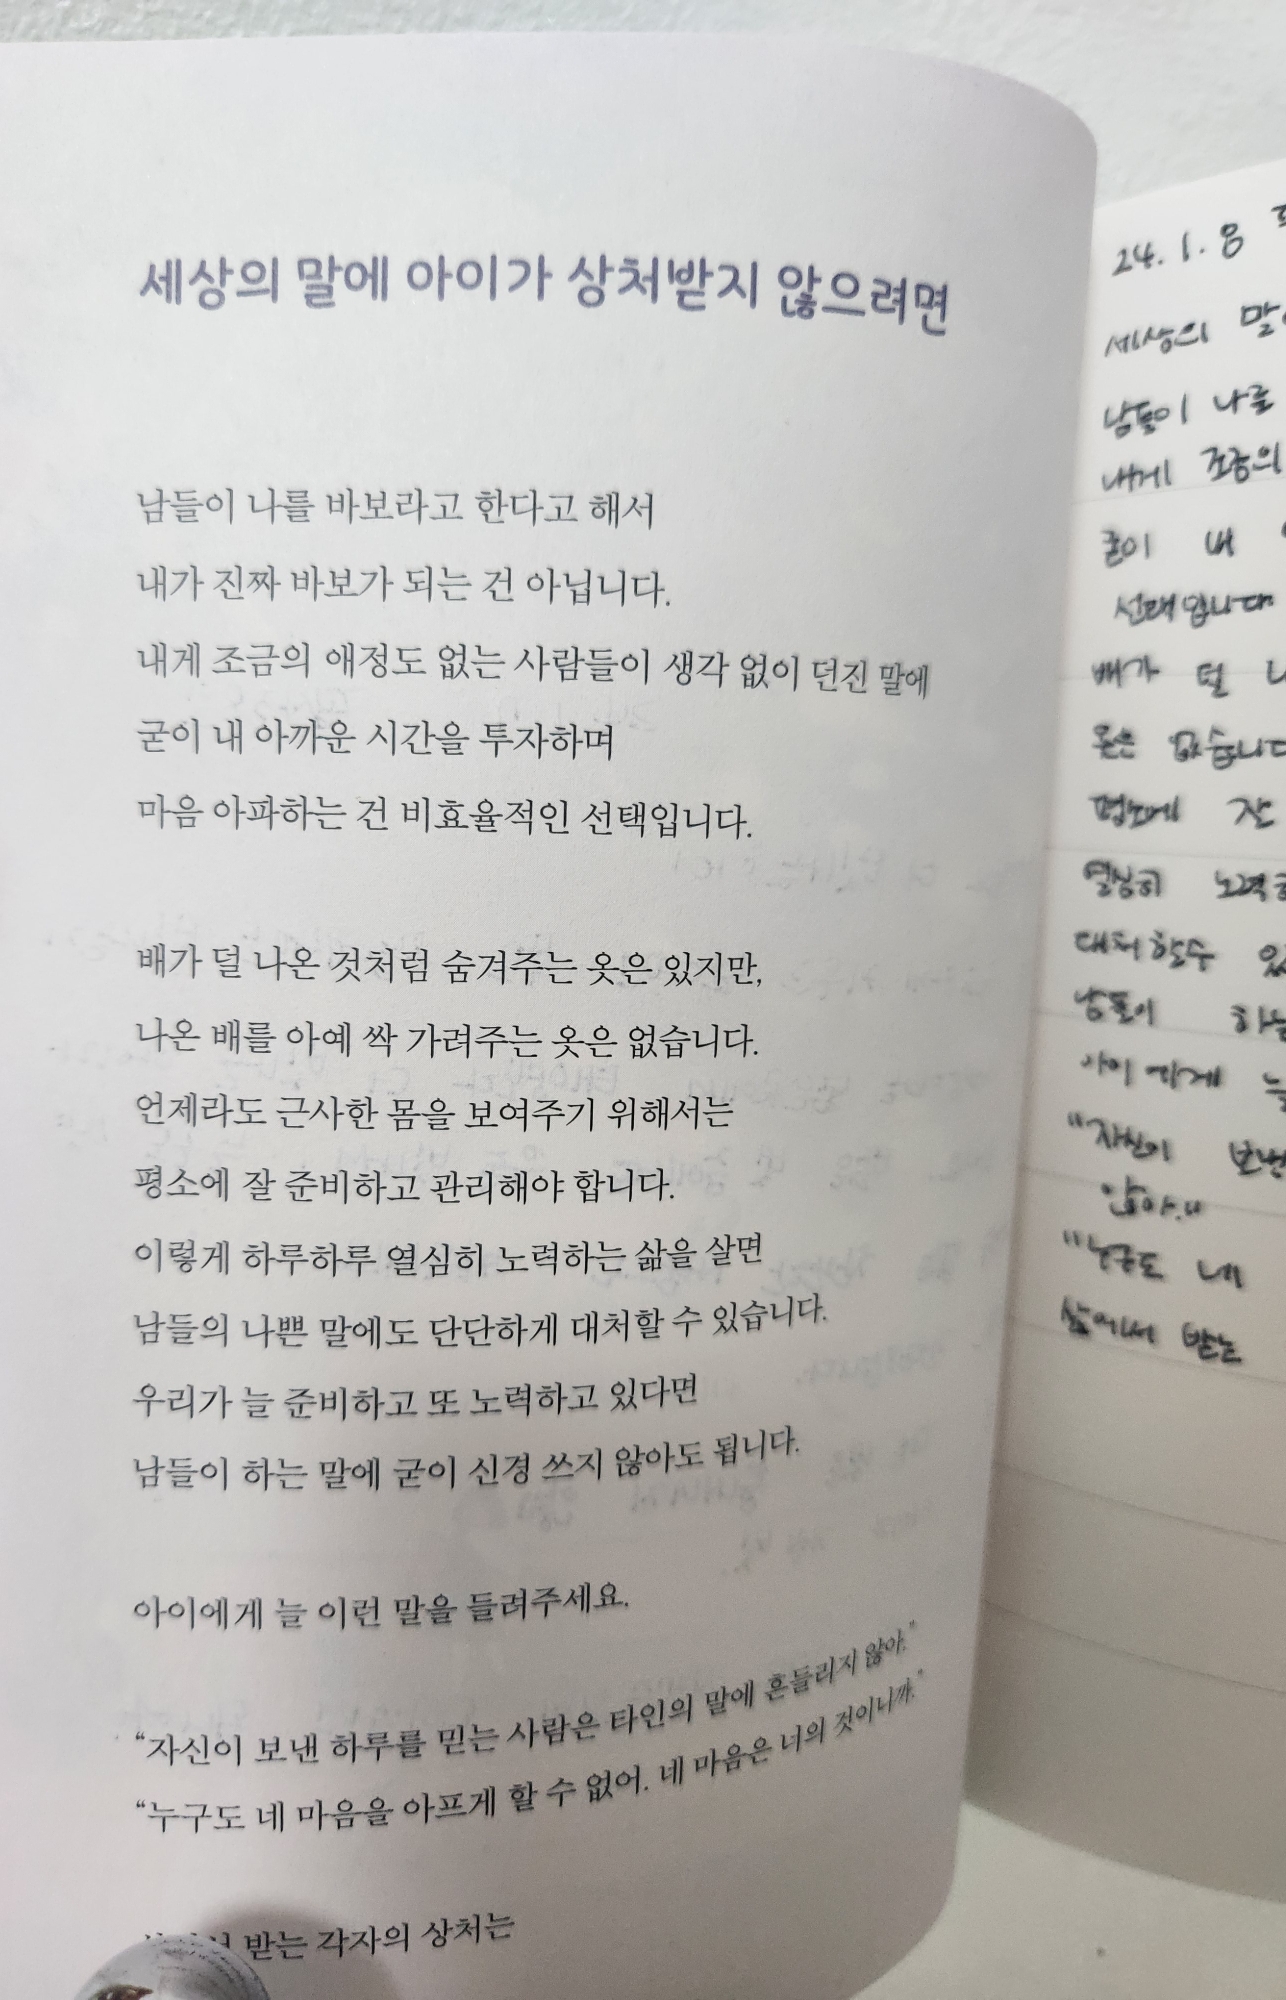 세상의 말에 아이가 상처받지 않으려면
남들이 나를 바보라고 한다고 해서
내가 진짜 바보가 되는 건 아닙니다.
내게 조금의 애정도 없는 사람들이 생각 없이 던진 말에
굳이 내 아까운 시간을 투자하며
마음 아파하는 건 비효율적인 선택입니다.
배가 덜 나온 것처럼 숨겨주는 옷은 있지만,
나온 배를 아예 싹 가려주는 옷은 없습니다.
언제라도 근사한 몸을 보여주기 위해서는
평소에 잘 준비하고 관리해야 합니다.
이렇게 하루하루 열심히 노력하는 삶을 살면
남들의 나쁜 말에도 단단하게 대처할 수 있습니다.
우리가 늘 준비하고 또 노력하고 있다면
남들이 하는 말에 굳이 신경 쓰지 않아도 됩니다.
아이에게 늘 이런 말을 들려주세요.
“자신이 보낸 하루를 믿는 사람은 타인의 말에 흔들리지 않아.”
“누구도 네 마음을 아프게 할 수 없어. 네 마음은 너의 것이니까.”
받는 각자의 상처는
24.1.8
세상의
남들이 나를
내게 조금의
굳이 내
선택입니다
배가 덜
옷은 없습니다
평소에 잘
열심히
대처할수
남들이
"자신이
않아."
"누구도 네
삶에서 받는